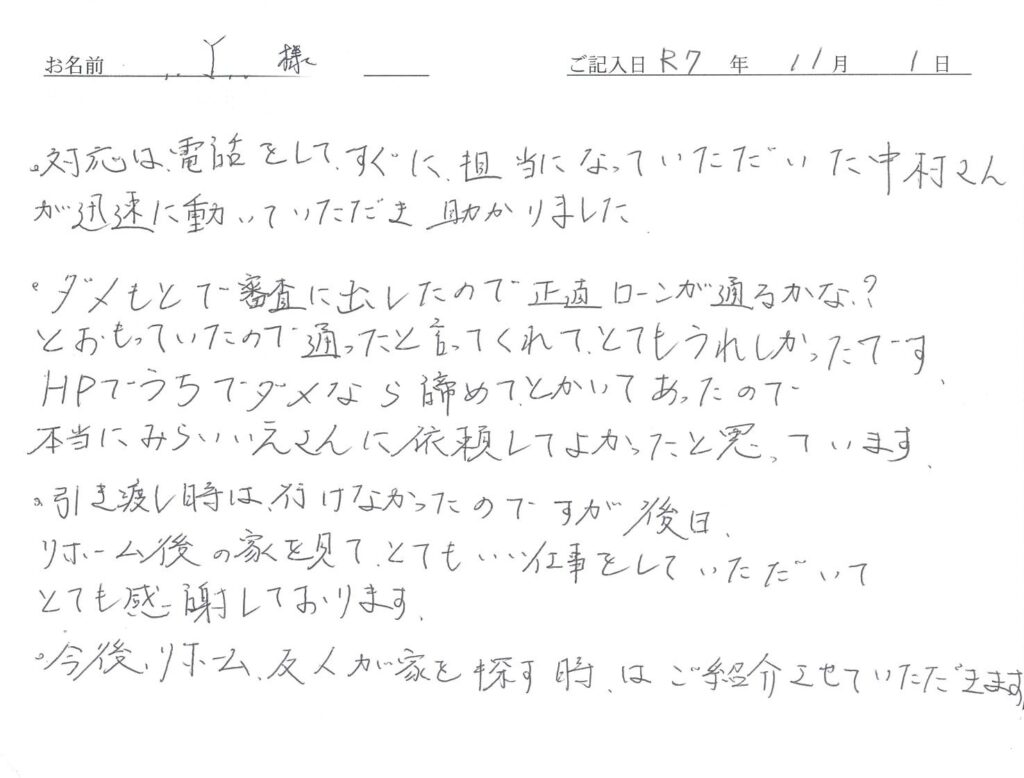 お名前 Y 様 ご記入日 R7 年 11月 1日
。対応は、電話をして、すぐに、担当になっていただいた中村さん
が迅速に動いていただき助かりました
。ダメもとで審査に出したので正直ローンが通るかな?
とおもっていたので通ったと言ってくれて、とてもうれしかったです、
HPでうちでダメなら諦めて、とかいてあったので
本当にみらいいえさんに依頼してよかったと思っています、
。引き渡し時は、行けなかったのですが後日、
リホーム後の家を見て、とてもいい仕事をしていただいて
とても感謝しております、
。今後、リホーム、友人が家を探す時、はご紹介させていただきます、